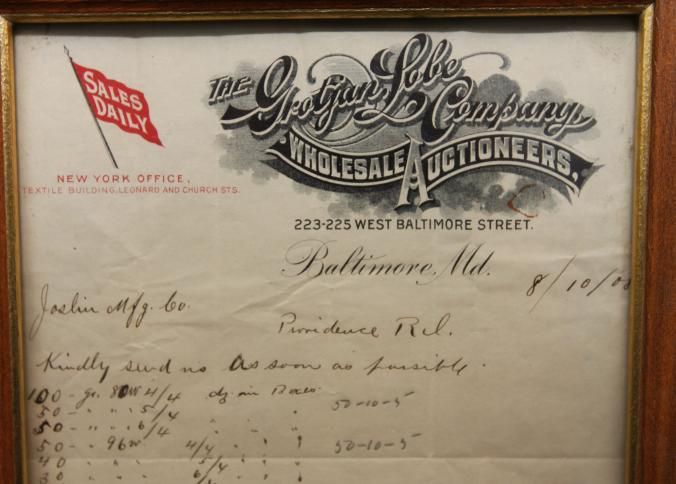 SALES
DAILY
NEW YORK OFFICE,
TEXTILE BUILDING, LEONARD AND CHURCH STS.
THE Grotjan Lobe
Company,
WHOLESALE AUCTIONEERS,
223-225 WEST BALTIMORE STREET.
Baltimore, Md. 8/10/00
Joslin Mfg. Co.
Providence R.I.
Kindly send us as soon as possible.
100 - gr. 80W 4/4 dz in Boxes
50 - " " " 5/4 " " " 50-10-5
50 - " " " 6/4 " " "
50 - " 96W 4/4 " " " 50-10-5
40 " " 5/4 " " "
30 " " 6/4 " " "